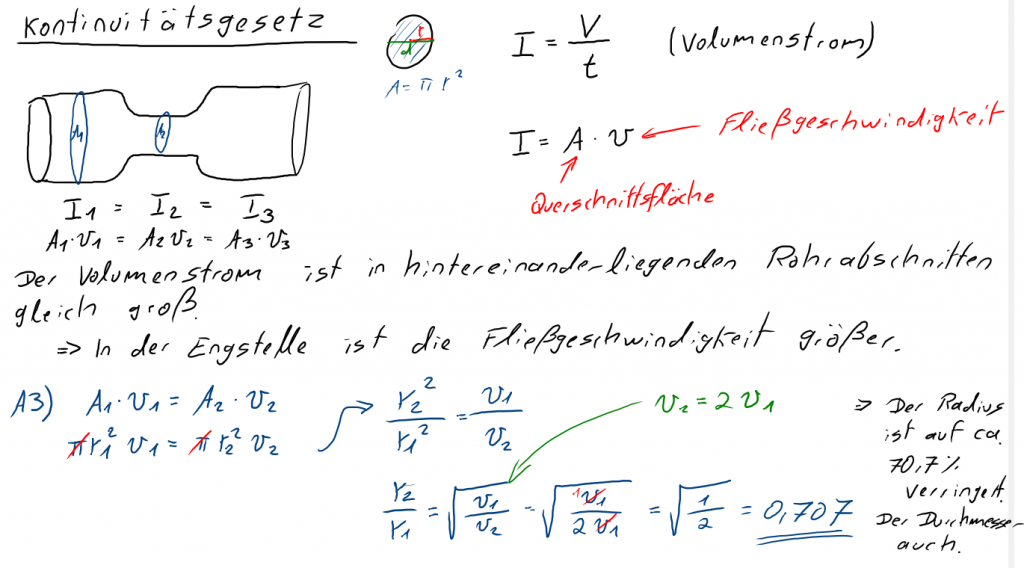 Kontinuitätsgesetz
r
d
A = π r²
I = V/t (Volumenstrom)
I = A · v ← Fließgeschwindigkeit
Querschnittsfläche
A1 A2
I1 = I2 = I3
A1·v1 = A2 v2 = A3·v3
Der Volumenstrom ist in hintereinanderliegenden Rohrabschnitten
gleich groß.
⇒ In der Engstelle ist die Fließgeschwindigkeit größer.
A3) A1·v1 = A2·v2
πr1² v1 = π r2² v2
r2²/r1² = v1/v2
v2 = 2 v1
r2/r1 = √(v1/v2) = √(1v1/2v1) = √(1/2) = 0,707
⇒ Der Radius
ist auf ca.
70,7%
verringert.
Der Durchmesser
auch.